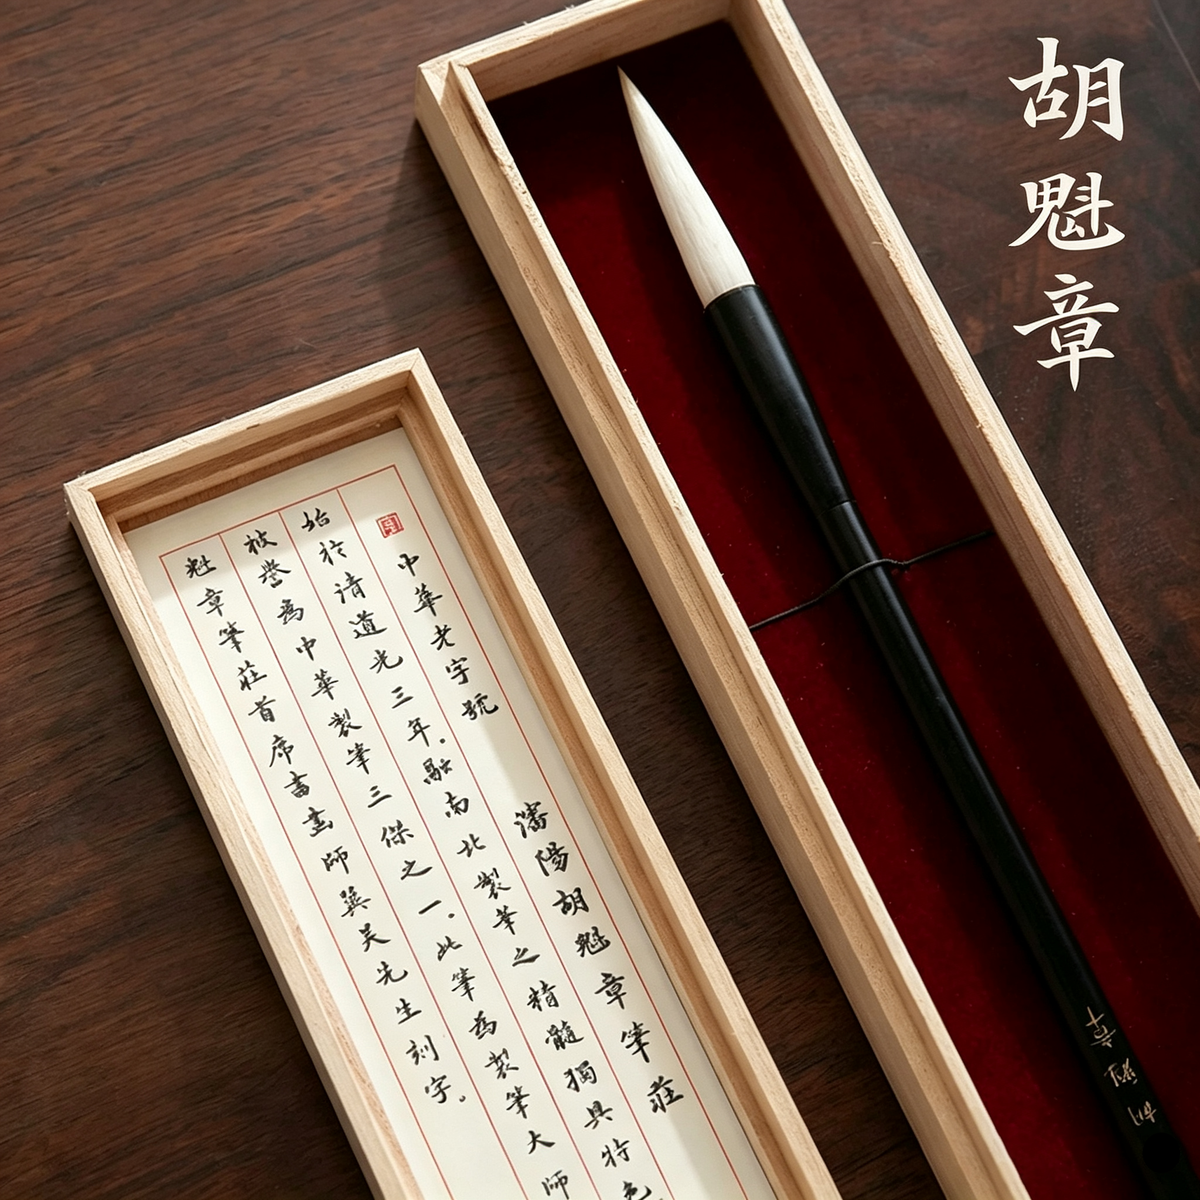 胡魁章
中華老字號 瀋陽胡魁章筆莊
始於清道光三年.融南北製筆之精髓獨具特色
被譽為中華製筆三傑之一.此筆為製筆大師
魁章筆莊首席書畫師吴先生刻字。
胡魁章